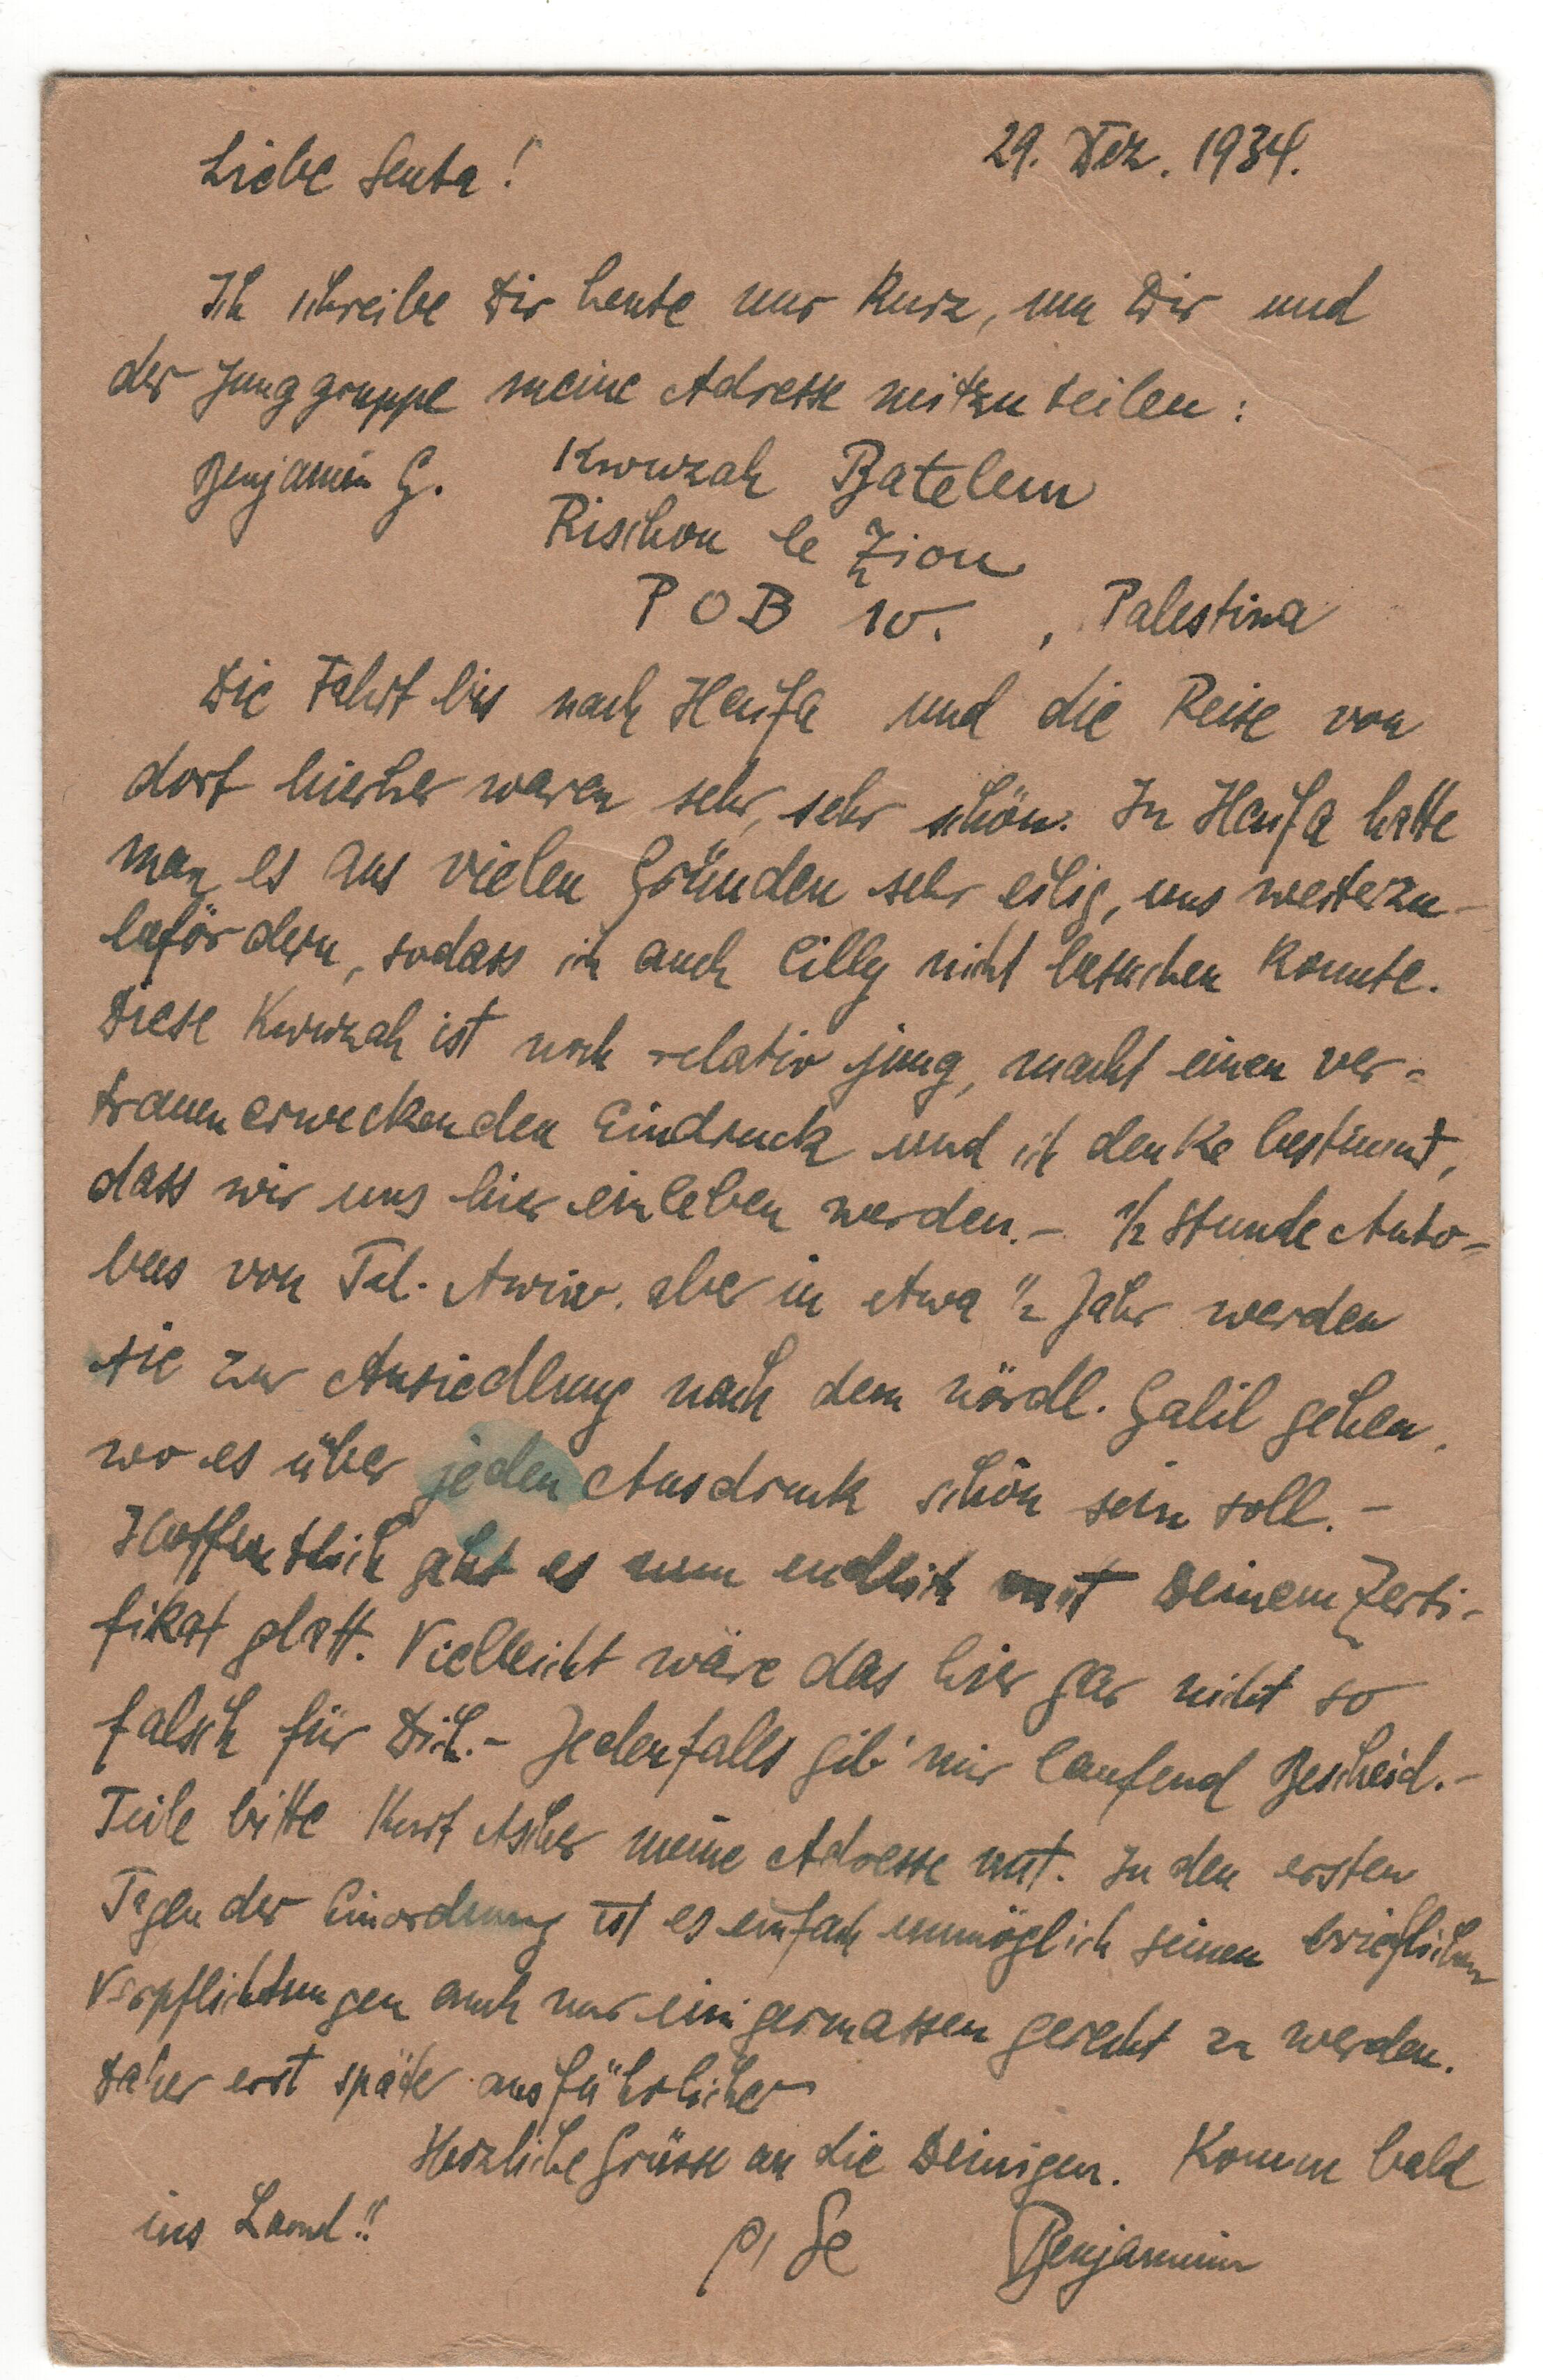 Liebe Senta!
29. Dez. 1934.
Ich schreibe Dir heute nur kurz, um Dir und
der Junggruppe meine Adresse mitzuteilen:
Benjamin G. Kwuzah Batelem
Rischon le Zion
POB 10. , Palestina
Die Fahrt bis nach Haifa und die Reise von
dort hierher waren sehr, sehr schön. In Haifa hatte
man es aus vielen Gründen sehr eilig, uns weiterzu-
befördern, sodass ich auch Cilly nicht besuchen konnte.
Diese Kwuzah ist noch relativ jung, macht einen ver-
trauenerweckenden Eindruck und ich denke bestimmt,
dass wir uns hier einleben werden. - 1/2 Stunde Auto-
bus von Tel-Awiw. aber in etwa 1/2 Jahr werden
sie zur Ansiedlung nach dem nördl. Galil gehen,
wo es über jeden Ausdruck schön sein soll. -
Hoffentlich geht es nun endlich mit Deinem Zerti-
fikat glatt. Vielleicht wäre das hier gar nicht so
falsch für Dich. - Jedenfalls gib' mir laufend Bescheid. -
Teile bitte Kurt Ascher meine Adresse mit. In den ersten
Tagen der Einordnung ist es einfach unmöglich seinen brieflichen
Verpflichtungen auch nur einigermassen gerecht zu werden.
Daher erst später ausführlicher
Herzliche Grüsse an die Deinigen. Komm bald
ins Land!!
Benjamin